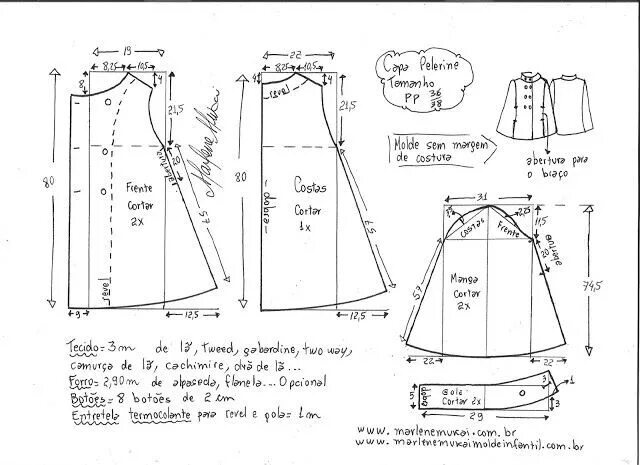 19
8,25
10,5
8
4
21,5
80
abertura
20
Frente
Cortar
2x
57
revel
9
12,5
Marlene Mukai
22
8,25
10,5
4
4
revel
21,5
80
dobra
Costas
Cortar
1x
57
12,5
Capa Pelerine
Tamanho
PP 36
38
Molde sem margem
de costura
abertura para
o braço
31
Costas
Frente
11,5
abertura
57
Manga
Cortar
2x
74,5
22
22
5
dobra
Gola
Cortar 2x
3
1
3
29
Tecido= 3m de lã, tweed, gabardine, two way,
camurça de lã, cachimire, chá de lã...
Forro= 2,90m de alpaseda, flanela... Opcional
Botões= 8 botões de 2 cm
Entretela termocolante para revel e gola= 1m
www.marlenemukai.com.br
www.marlenemukaimoldeinfantil.com.br